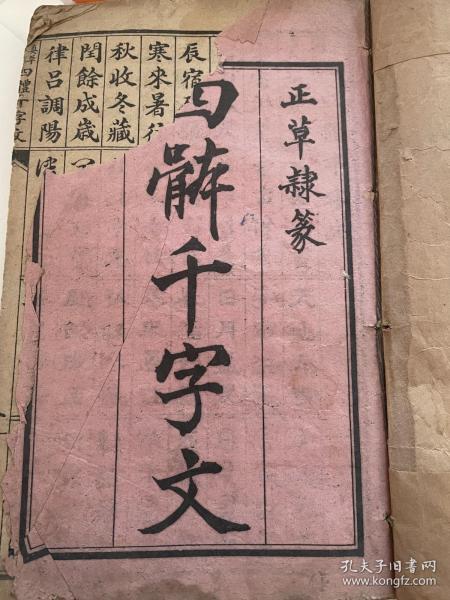 正草隸篆
四骵千字文
辰宿
寒來暑往
秋收冬藏
閏餘成歲
律呂調陽
四體千字文
孔夫子旧书网
www.kongfz.com